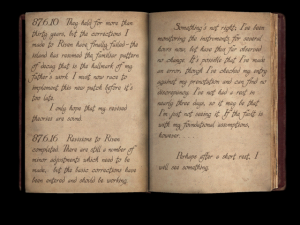 87.6.10 They held for more than
thirty years, but the corrections I
made to Riven have finally failed - the
island has resumed the familiar pattern
of decay that is the hallmark of my
father's work. I must now race to
implement this new patch before it's
too late.
I only hope that my revised
theories are sound.
87.6.16 Revisions to Riven
completed. There are still a number of
minor adjustments which need to be
made, but the basic corrections have
been entered and should be working.
Something's not right. I've been
monitoring the instruments for several
hours now, but have thus far observed
no change. It's possible that I've made
an error, though I've checked my entry
against my precalculation and can find no
discrepancy. I've not had a rest in
nearly three days, so it may be that
I'm just not seeing it. If the fault is
with my foundational assumptions,
however...
Perhaps after a short rest, I
will see something.